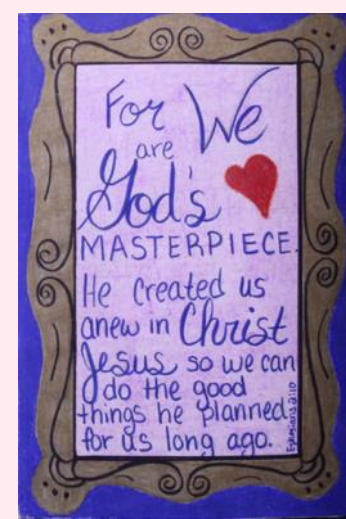 For We
are
God's
MASTERPIECE.
He created us
anew in Christ
Jesus so we can
do the good
things he planned
for us long ago.
Ephesians 2:10